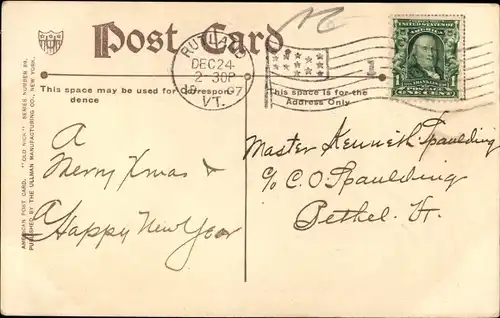 Post Card
RUTLAND
DEC 24
2 30P
1907
VT.
This space may be used for correspon-
dence
This space is for the
Address Only
1 FRANKLIN 1
ONE CENT
A
Merry Xmas &
A Happy New Year
Master Kenneth Spaulding
c/o C. O. Spaulding
Bethel. Vt.
AMERICAN POST CARD. "OLD NICK" SERIES NUMBER
PUBLISHED BY THE ULLMAN MANUFACTURING CO., NEW YORK.